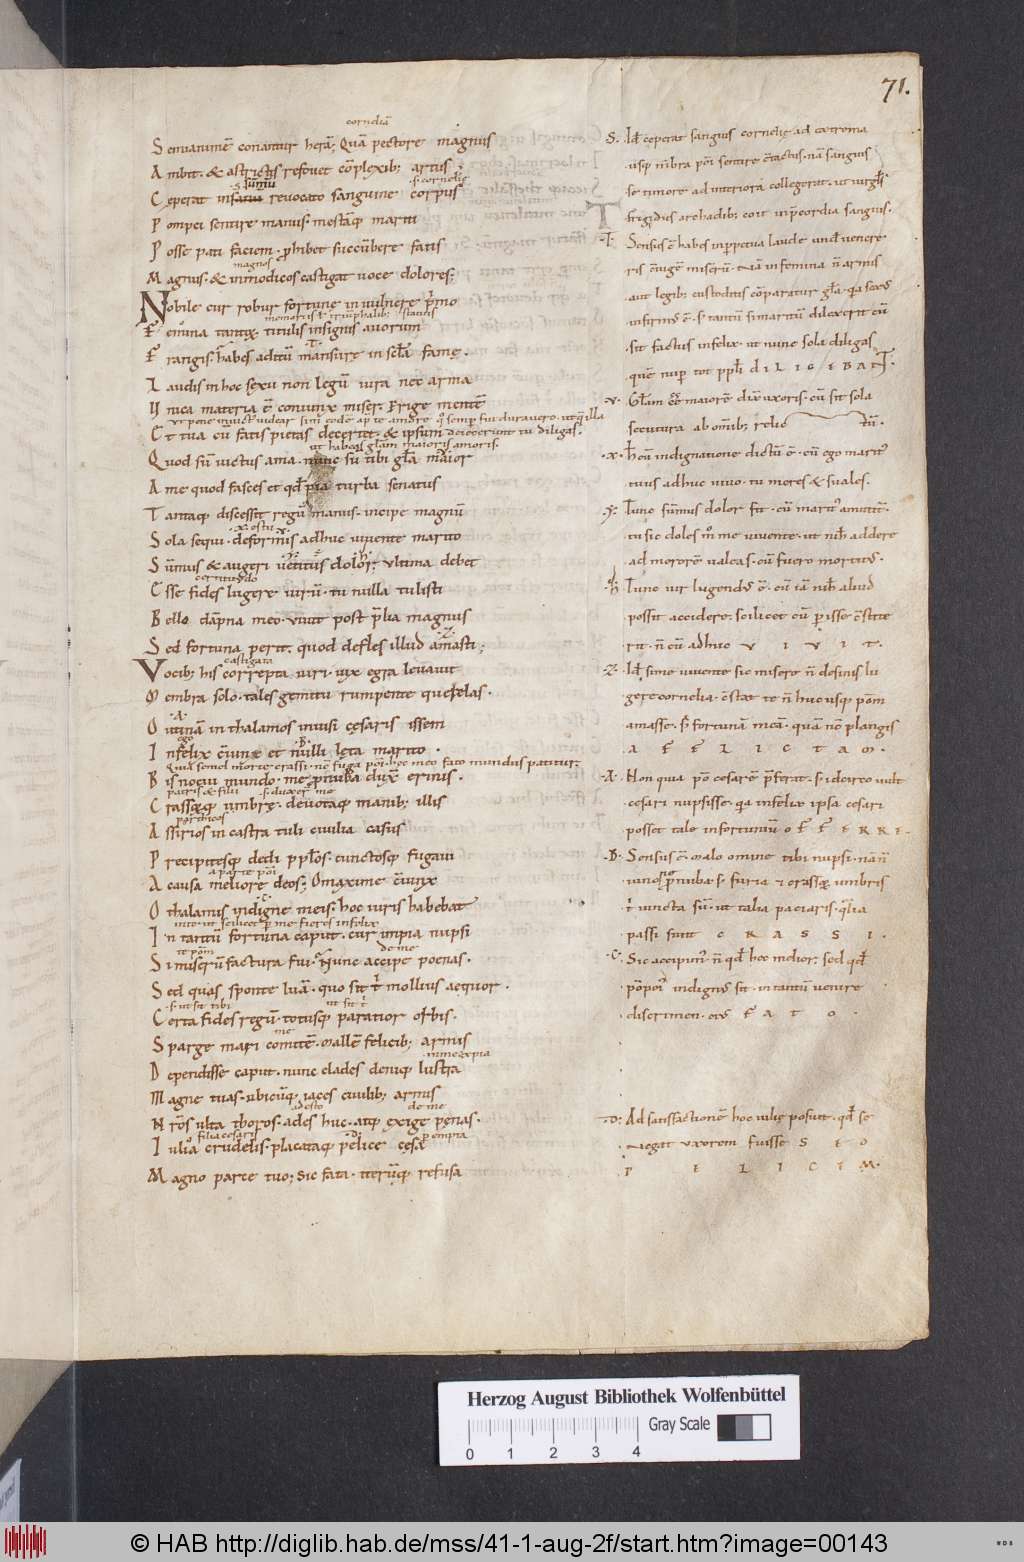 71.
corneliā
Semianimē conantur herā; Quā pectore magnus
Ambit. & astrictos refovet cōplexib; artus
s. cornelie
sūmū
Ceperat infanū revocato sanguine corpus
Pompei sentire manus. mestāq; mariti
Posse pati faciem. phibet succūbere fatis
Magnus. & inmodicos castigat voce dolores;
magnos
Nobile cur robur fortune in vulnere p̄mo
Femina tantoꝝ titulis insignis avorum
Frangis. habes aditū mansure in scl̄a fame.
Laudis in hoc sexu non legū iura nec arma
Unica materia ē coniunx miser. Erige mentē
Et tua cū fatis pietas decertet. & ipsum
ut habeas glām maioris amoris.
Quod sū victus ama. nunc sū tibi glā maior
A me quod fasces et qd̄ pia turba senatus
Tantaq; discessit regū manus. incipe magnū
Sola sequi. deformis adhuc vivente marito
Sūmus & augeri vetitus dolor; ultima debet
Esse fides lugere virū. tu nulla tulisti
Bello dāpna meo. vivit post p̄lia magnus
Sed fortuna perit. quod defles illud amasti;
castigata
Vocib; his correpta viri. vix egra levavit
Membra solo. tales gemitu rumpente querelas.
O utinā in thalamos invisi cęsaris issem
ego
Infelix cōiunx et nulli lęta marito.
Bis nocui mundo. me p̄nuba ducit erinis.
patris & filii
Crassoꝝq; umbrę. devotaq; manib; illis
parthicos
Assirios in castra tuli civilia casus
Precipitesq; dedi ppl̄os. cunctosq; fugavi
A causa meliore deos; O maxime cōiunx
O thalamis indigne meis. hoc iuris habebat
In tantū fortuna caput. cur impia nupsi
de me
Si miserū factura fui. Nunc accipe poenas.
Sed quas sponte luā. quo sit t̄ mollius aequor.
s. ut sit tibi
Certa fides regū. totusq; paratior orbis.
me
Sparge mari comitē. mallē felicib; armis
Dependisse caput. nunc clades deniq; lustra
Magne tuas. ubicūq; iaces civilib; armis
de me
Nr̄os ulta thoros. ades huc. atq; exige pęnas.
filia cesaris
Iulia crudelis. placataq; pelice cęsa
Magno parce tuo; Sic fata. iterūq; refusa
S. Id̄ ceperat sanguis cornelię ad extrema
usq; mēbra pōi sentire cōtactus. nā sanguis
se timore ad interiora collegerat. ut virgl̄s
frigidus archadib; coit in p̄cordia sanguis.
T. Sensus ē habes in perpetua laude unde venere
ris cōiugē miserū. Nā in femina ñ armis
aut legib; custoditis cōparatur glā. q̄a sexus
infirmus ē. s; tantū si maritū dilexerit cū
sit factus infelix. ut nunc sola diligas
quē nup tot ppl̄i DILIGEBANT.
V. Glām maiorē dix̄ uxoris. cū sit sola
secutura ab omib; relictū.
X. Hoc cū indignatione dictū ē. cū ego marit᾽
tuus adhuc vivo. tu mores & squales.
Tunc sūmus dolor fit. cū marit᾽ amittit᾽.
tu sic doles m̊ me vivente. ut nihil addere
ad merorē valeas. cū fuero mortuus.
Tunc vir lugendus ē. cū iā nihil aliud
possit accidere. scilicet cū perisse cōstite
rit ñ cū adhuc VIVIT.
Z. Id̄ si me vivente sic misere ñ desinis lu
gere cornelia. cōstat te ñ hucusq; pōm
amasse. s; fortunā meā. quā nc̄ plangis
AFFLICTAM.
A. Non qua pō cesarē p̄ferat. s; idcirco vult
cesari nupsisse. q̄a infelix ipsa cesari
posset tale infortuniū OFFERRE.
B. Sensus ē. malo omine tibi nupsi. nā ñ
iuno p̄nuba. s; furia & crassoꝝ umbris
t̄ iuncta sū. ut talia paciaris. q̄lia
passi sunt CRASSI.
C. Sic accipim᾽ ñ qd̄ hoc melior. sed qd̄
pōpei᾽ indignus sit. in tantū venire
discrimen. FATO.
D. Ad satisfactionē hoc iulię posuit. qd̄ se
negat uxorem fuisse SED
PELICEM.
Herzog August Bibliothek Wolfenbüttel
Gray Scale
0 1 2 3 4
© HAB http://diglib.hab.de/mss/41-1-aug-2f/start.htm?image=00143